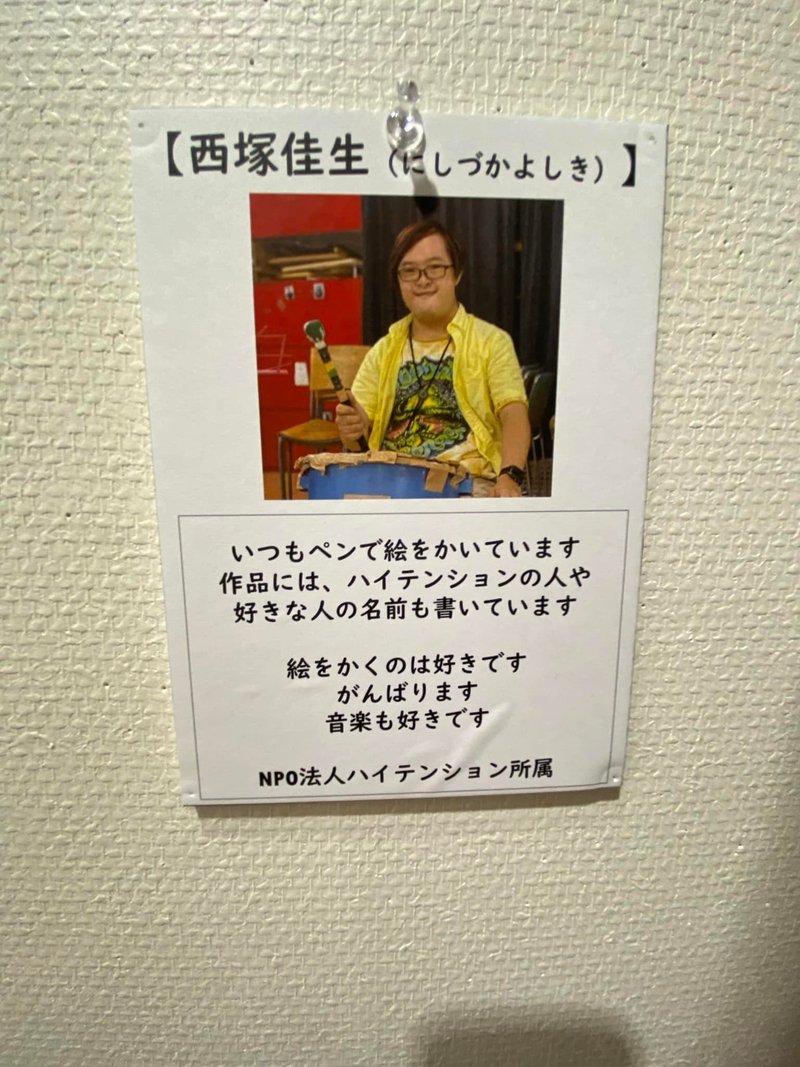 【西塚佳生（にしづかよしき）】
いつもペンで絵をかいています
作品には、ハイテンションの人や
好きな人の名前も書いています
絵をかくのは好きです
がんばります
音楽も好きです
NPO法人ハイテンション所属